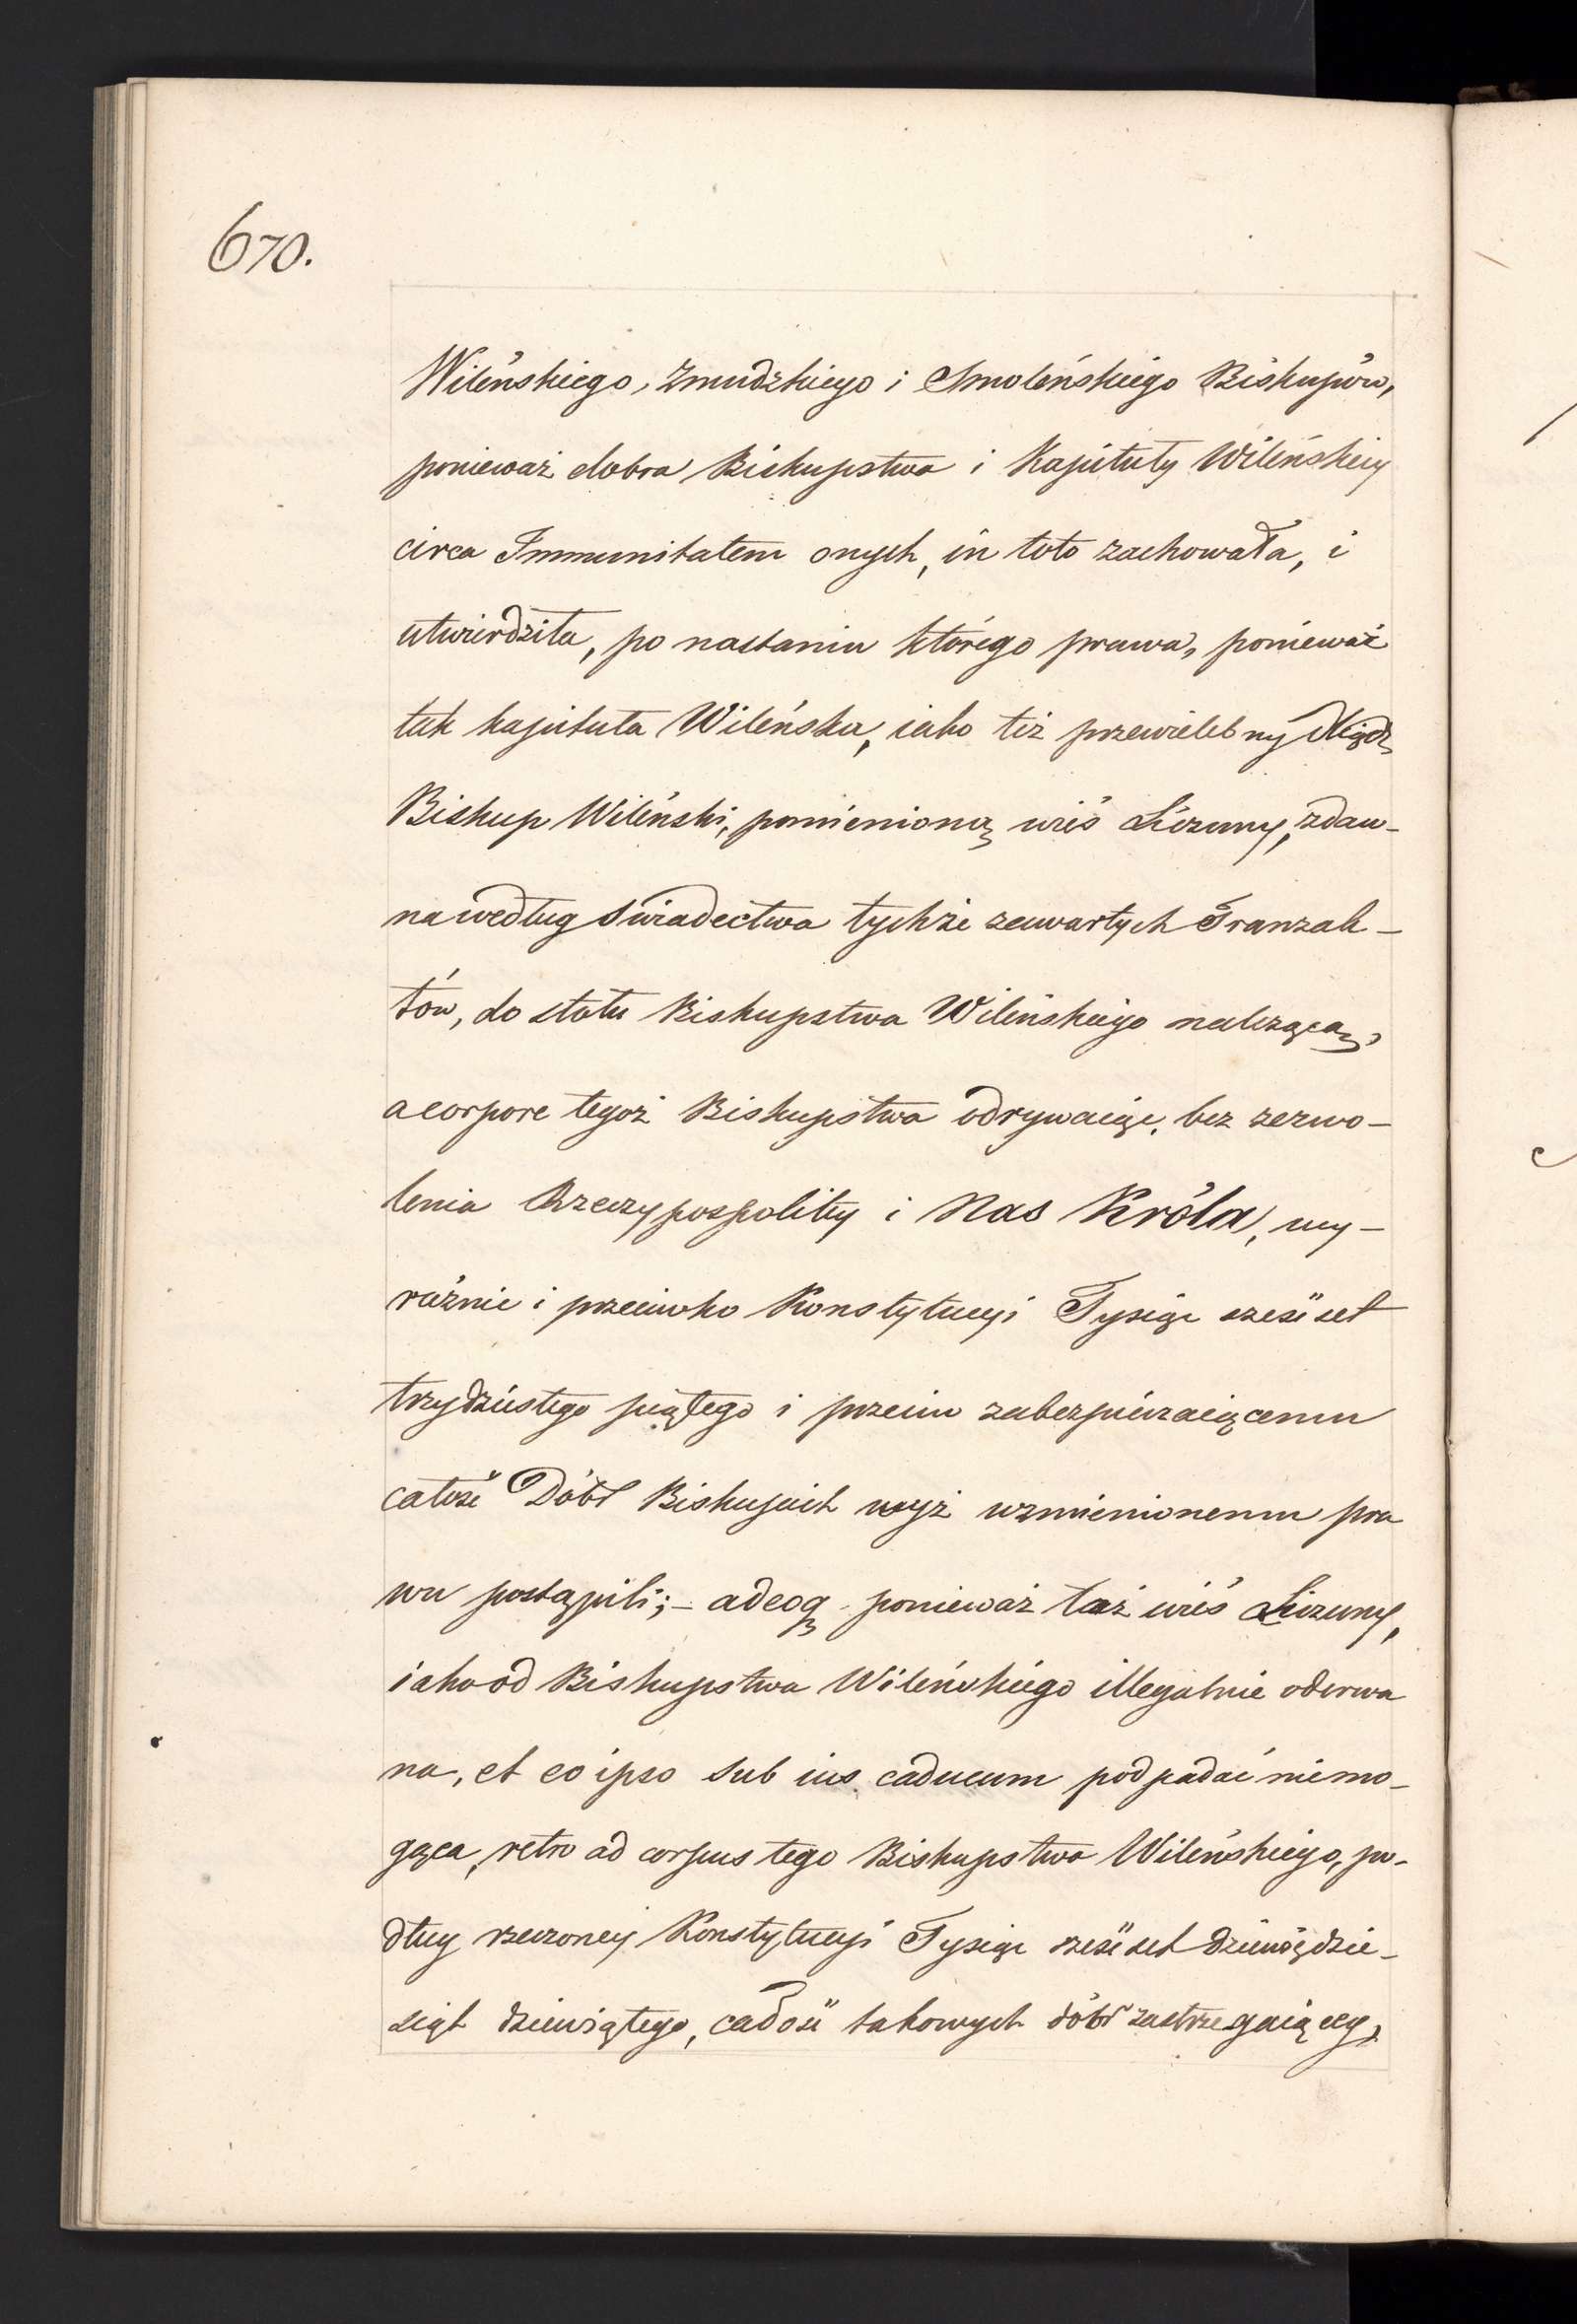 670.
Wileńskiego, Zmudzkiego i Smoleńskiego Biskupów,
ponieważ dobra Biskupstwa i Kapituły Wileńskiey
circa Immunitatem onych, in toto zachowała, i
utwierdziła, po nastaniu którego prawa, ponieważ
tak kapituła Wileńska, iako też przewielebny Xiądz
Biskup Wileński, pomienioną wieś Łozuny, zdaw-
na według świadectwa tychże zawartych Tranzak-
tów, do stołu Biskupstwa Wileńskiego należącą,
a corpore tegoż Biskupstwa odrywaiąc, bez zezwo-
lenia Rzeczypospolitey i Nas Króla, wy-
raźnie i przeciwko Konstytucyi Tysiąc sześćset
trzydziestego piątego i przeciw zabezpieczaiącemu
całość Dóbr Biskupich wyż wzmienionemu pra
wu postąpili;- adeoq ponieważ taż wieś Łozuny,
iako od Biskupstwa Wileńskiego illegalnie oderwa
na, et eo ipso sub ius caducum podpadać niemo-
gąca, retro ad corpus tego Biskupstwa Wileńskiego, po-
dług rzeczoney Konstytucyi Tysiąc sześćset dziewiędzie-
siąt dziewiątego, całość takowych dóbr zastrzegaiącey,